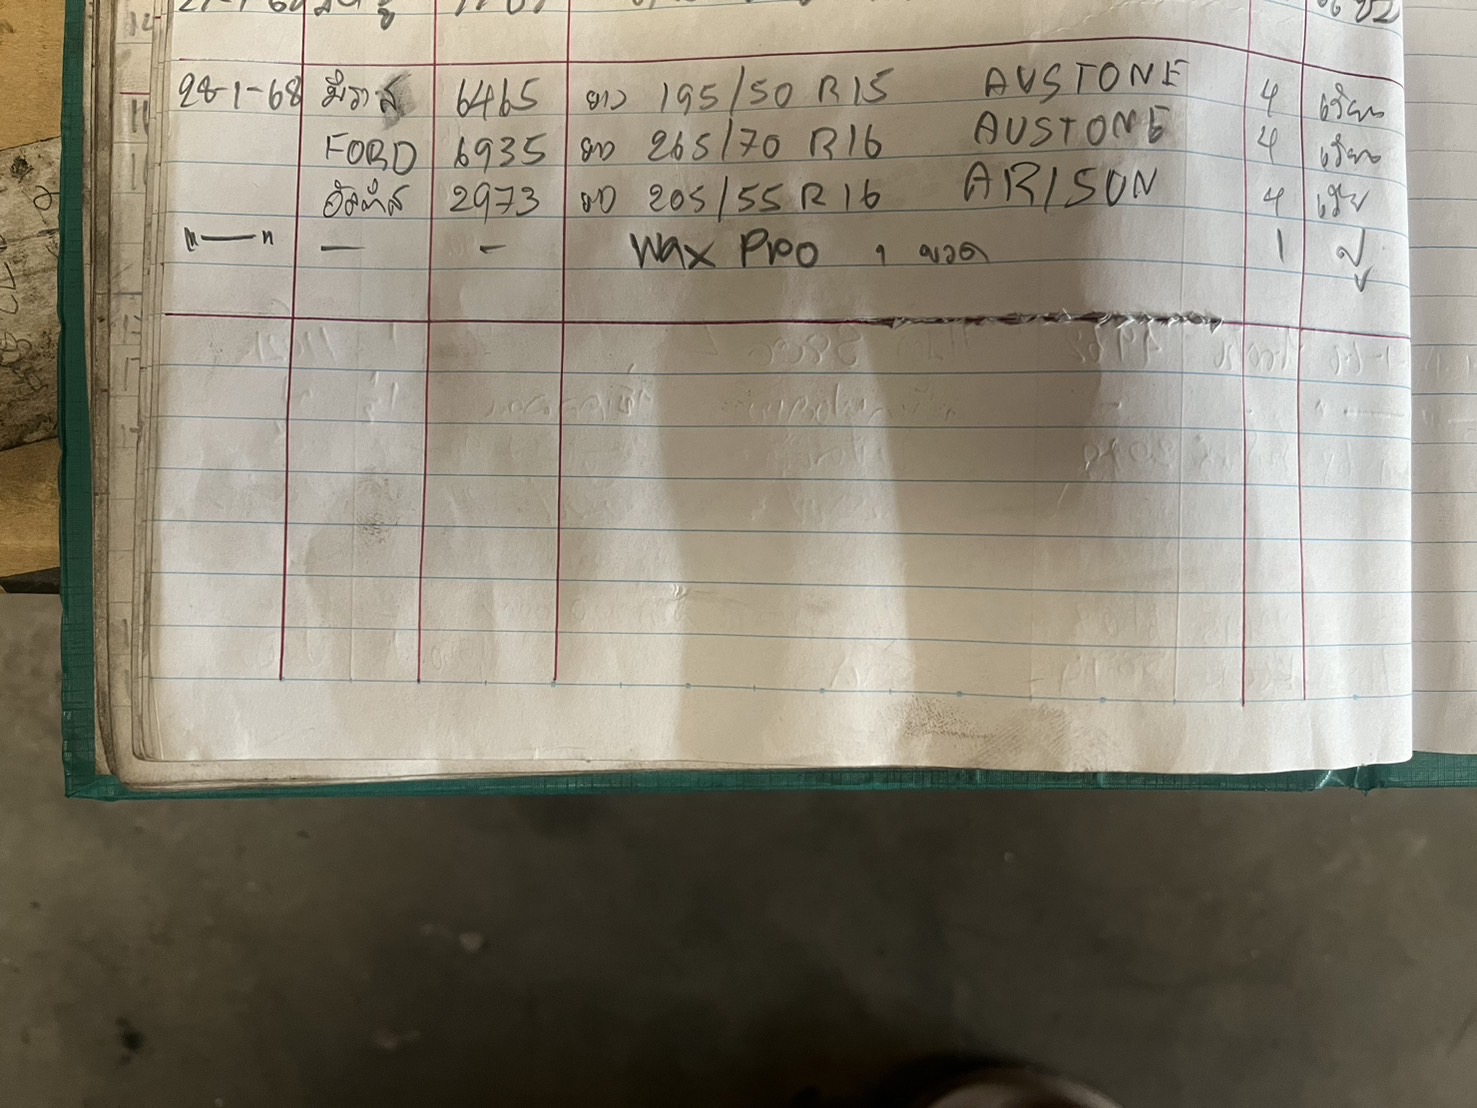 28-1-68 มิราส 6465 ยาง 195/50 R15 AUSTONE 4
FORD 6935 ยาง 265/70 R16 AUSTONE 4
อัลติส 2973 ยาง 205/55 R16 ARISUN 4
"—" — - Wax Pro 1 ขวด 1